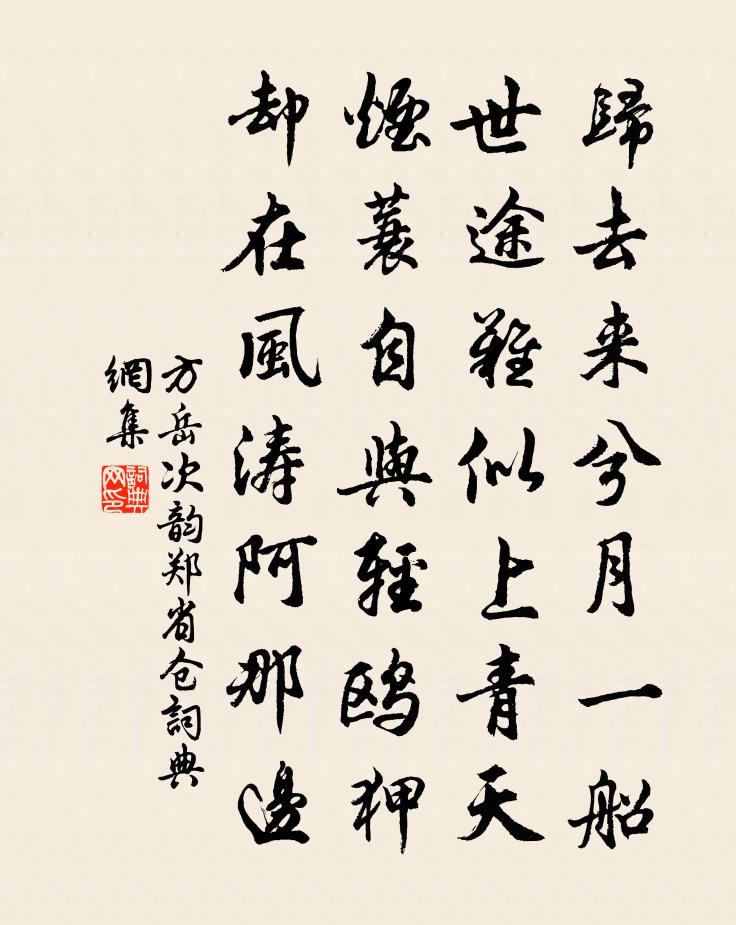 歸去来兮月一船
世途難似上青天
煙蓑自與輕鷗狎
却在風濤阿那邊
方岳次韵郑省仓詞典
網集
詞典
网印